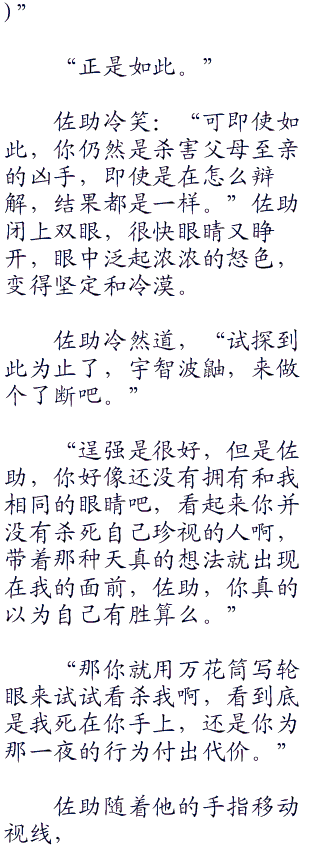 )”
“正是如此。”
佐助冷笑：“可即使如
此，你仍然是杀害父母至亲
的凶手，即使是在怎么辩
解，结果都是一样。”佐助
闭上双眼，很快眼睛又睁
开，眼中泛起浓浓的怒色，
变得坚定和冷漠。
佐助冷然道，“试探到
此为止了，宇智波鼬，来做
个了断吧。”
“逞强是很好，但是佐
助，你好像还没有拥有和我
相同的眼睛吧，看起来你并
没有杀死自己珍视的人啊，
带着那种天真的想法就出现
在我的面前，佐助，你真的
以为自己有胜算么。”
“那你就用万花筒写轮
眼来试试看杀我啊，看到底
是我死在你手上，还是你为
那一夜的行为付出代价。”
佐助随着他的手指移动
视线，